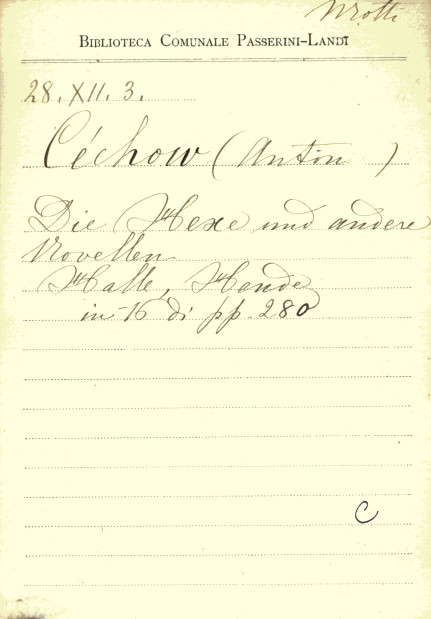 BIBLIOTECA COMUNALE PASSERINI-LANDI
28. XII. 3.
Céchow (Anton)
Die Hexe und andere
Novellen
Halle, Hende
in-16 di pp. 280
C